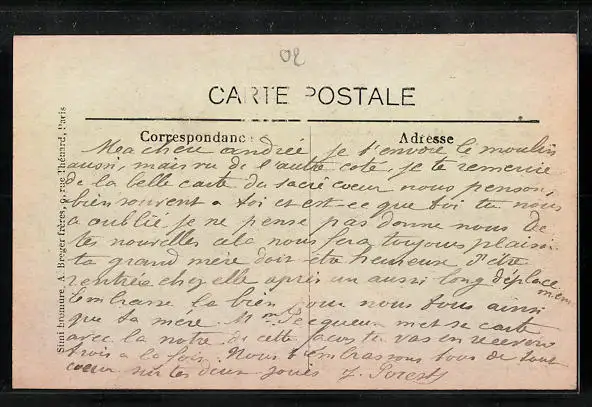 02
CARTE POSTALE
Correspondance
Adresse
Simi bromure. A. Breger frères, 9, rue Thénard, Paris
Ma chère andrée je t'envoie le moulin
aussi, mais vu de l'autre coté, je te remercie
de la belle carte du sacré coeur nous pensons
bien souvent a toi et est-ce que toi tu nous
a oublié je ne pense pas donne nous de
tes nouvelles cela nous fera toujours plaisir
ta grand mère doit etre heureuse d'être
rentrée chez elle après un aussi long déplace
ment
Embrasse la bien pour nous tous ainsi
que ta mère. Mme met sa carte
avec la notre de cette façon tu vas en recevoir
trois a la fois. Nous t'embrassons tous de tout
coeur sur tes deux joues